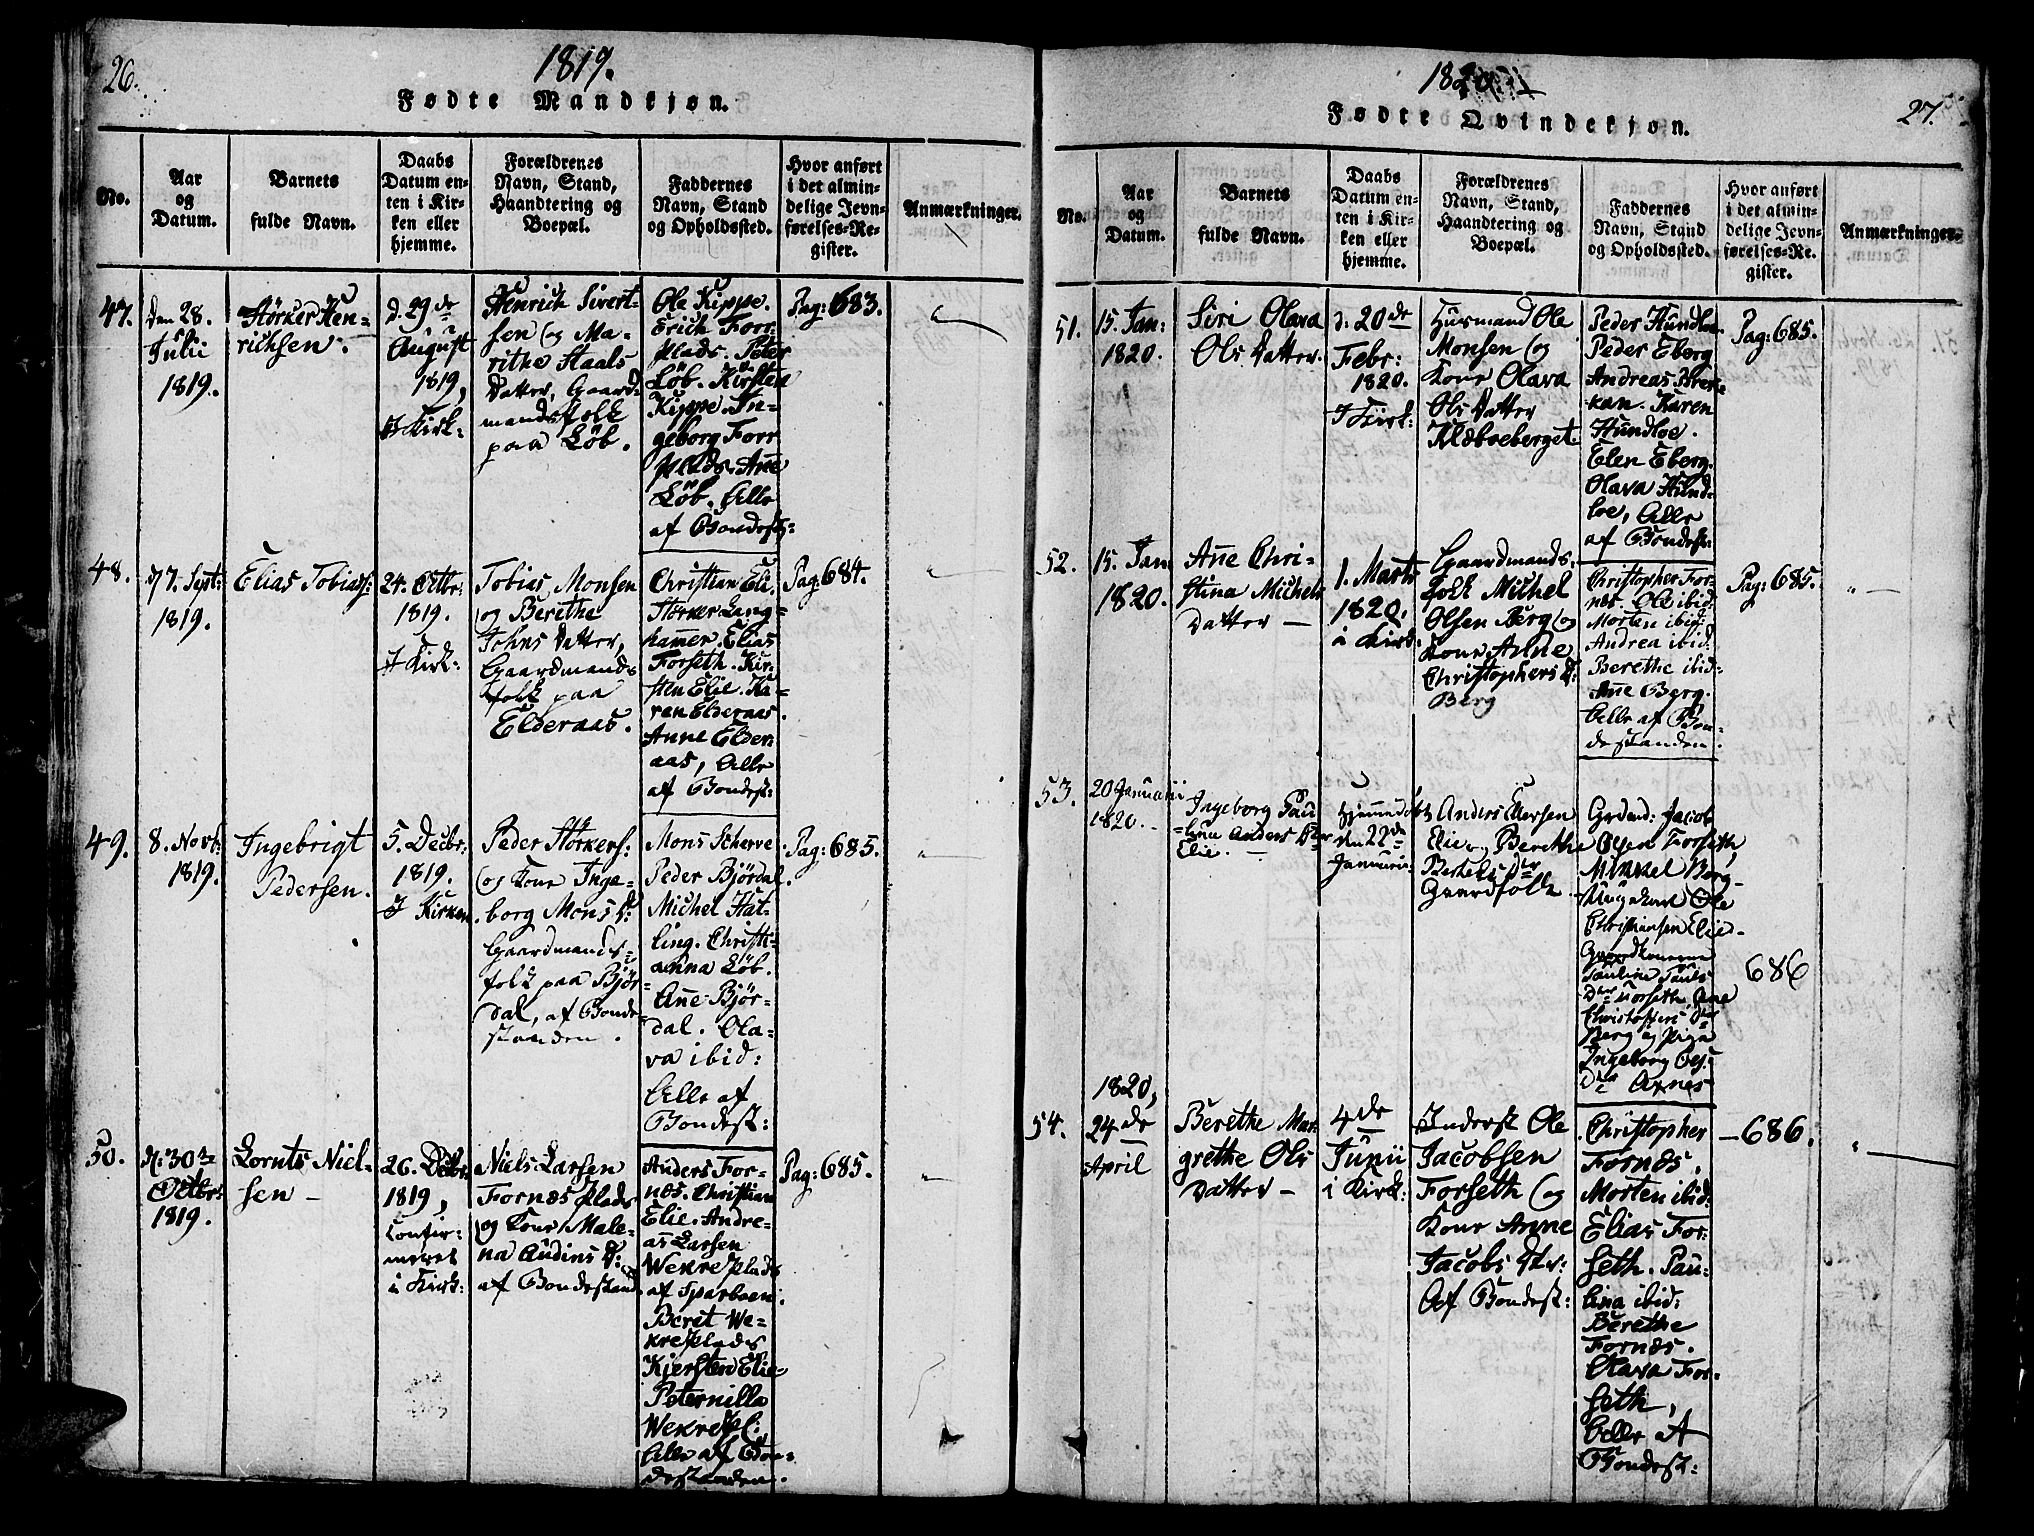 26.
1819.
Fødte Mandkjøn.
No.
Aar
og
Datum.
Barnets
fulde Navn.
Daabs
Datum en-
ten i Kir-
ken eller
hjemme.
Forældrenes
Navn, Stand,
Haandtering og
Boepæl.
Faddernes
Navn, Stand
og Opholdssted.
Hvor anført
i det almin-
delige Jevn-
førelses-Re-
gister.
Anmærkninger.
47.
den 28.
Julii
1819.
Størker Hen-
richsen.
d. 29de
August
1819,
I Kirk:
Henrich Sivert-
sen og Ma-
rithe Haals
Datter, Gaard-
mandsfolk
paa Løb.
Ole Kippe.
Erich Forr-
plads. Peter
Løb. Kirsten
Kippe. In-
geborg Forr
plads. Ane
Løb. Alle
af Bondest:
Pag: 683.
48.
d 7. Sept:
1819.
Elias Tobias:
24. Octbr:
1819.
I Kirk:
Tobias Monsen
og Berethe
Johns Datter,
Gaardmands
folk paa
Elderaas.
Christian Eli.
Størker Lang-
hammer. Elias
Forseth. Kir-
sten Elie. Ka-
ren Elderaas.
Anne Elder-
aas, Alle
af Bondest:
Pag: 684.
49.
8. Novb:
1819.
Ingebrigt
Pedersen.
5. Decbr:
1819.
I Kirken.
Peder Størkers:
og Kone Inge-
borg Mons D:
Gaardmands-
folk paa Bjør-
dal, af Bonde-
standen.
Mons Scherve
Peder Bjørdal.
Michel Hat-
ling. Christi-
anna Løb.
Ane Bjør-
dal. Ola-
va ibid:
Alle af
Bondest:
Pag: 685.
50.
d. 30te
Octbr:
1819.
Lornts Niel-
sen
26. Decbr:
1819,
Confir-
meret
i Kirk:
Niels Larsen
Fornæs plads
og Kone Male-
na Audins D:
af Bondestand.
Anders For-
næs. Christian
Elie. Andre-
as Larsen
Wekre plads
af Sparboen.
Beret We-
kreplads
Kjersten Elie
Peternilla
Wekrepl:
Alle af Bon-
destanden.
Pag: 685.
1820.
27.
Fødte Qvindekjøn.
No.
Aar
og
Datum.
Barnets
fulde Navn.
Daabs
Datum en-
ten i Kir-
ken eller
hjemme.
Forældrenes
Navn, Stand,
Haandtering og
Boepæl.
Faddernes
Navn, Stand
og Opholdssted.
Hvor anført
i det almin-
delige Jevn-
førelses-Re-
gister.
Anmærkninger.
51.
15. Jan:
1820.
Siri Olava
Ols Datter.
d. 20de
Febr:
1820.
I Kirk:
Husmand Ole
Monsen og
Kone Olava
Ols Datter
Kleboeberget.
Peder Hundloe
Peder Eberg
Andreas Brek-
kan. Karen
Hundloe.
Elen Eberg.
Olava Hund-
loe, Alle
af Bondest:
Pag: 685.
52.
15. Jan
1820.
Ane Chri-
stina Michels
Datter
1. Marti
1820.
i Kirk:
Gaardmands
folk Michel
Olsen Berg og
Kone Anne
Christophers D:
Berg
Christopher For-
næs. Ole ibid:
Morten ibid:
Andrea ibid:
Berethe ibid:
Ane Berg.
Alle af Bon-
destanden.
Pag: 685.
53.
20 Januarii
1820.
Ingeborg Pau
lina Anders Dtr
Elie.
Hjemmedøbt
den 22de
Januarii
Anders Ellersen
Elie og Berethe
Bertels Dtr
Gaardfolk
Grdmd: Jacob
Olsen Forseth,
Mikkel Berg
Ungekarl Ole
Christiansen Elie
Gaardkonerne
Pauline Pauls
Dtr Forseth, Ane
Christoffers Dtr
Berg og Piga
Ingeborg Oles
Dtr Axnes
686
54.
1820,
24de
April
Berethe Mar
grethe Ols
Datter
4de
Junii
i Kirk:
Inderst Ole
Jacobsen
Forseth og
Kone Anne
Jacobs Dtr:
Af Bondest:
Christopher
Fornæs.
Morten ibid:
Elias For-
seth. Pau-
lina ibid:
Berethe
Fornæs.
Olava For-
seth,
Alle af
Bondest:
686.